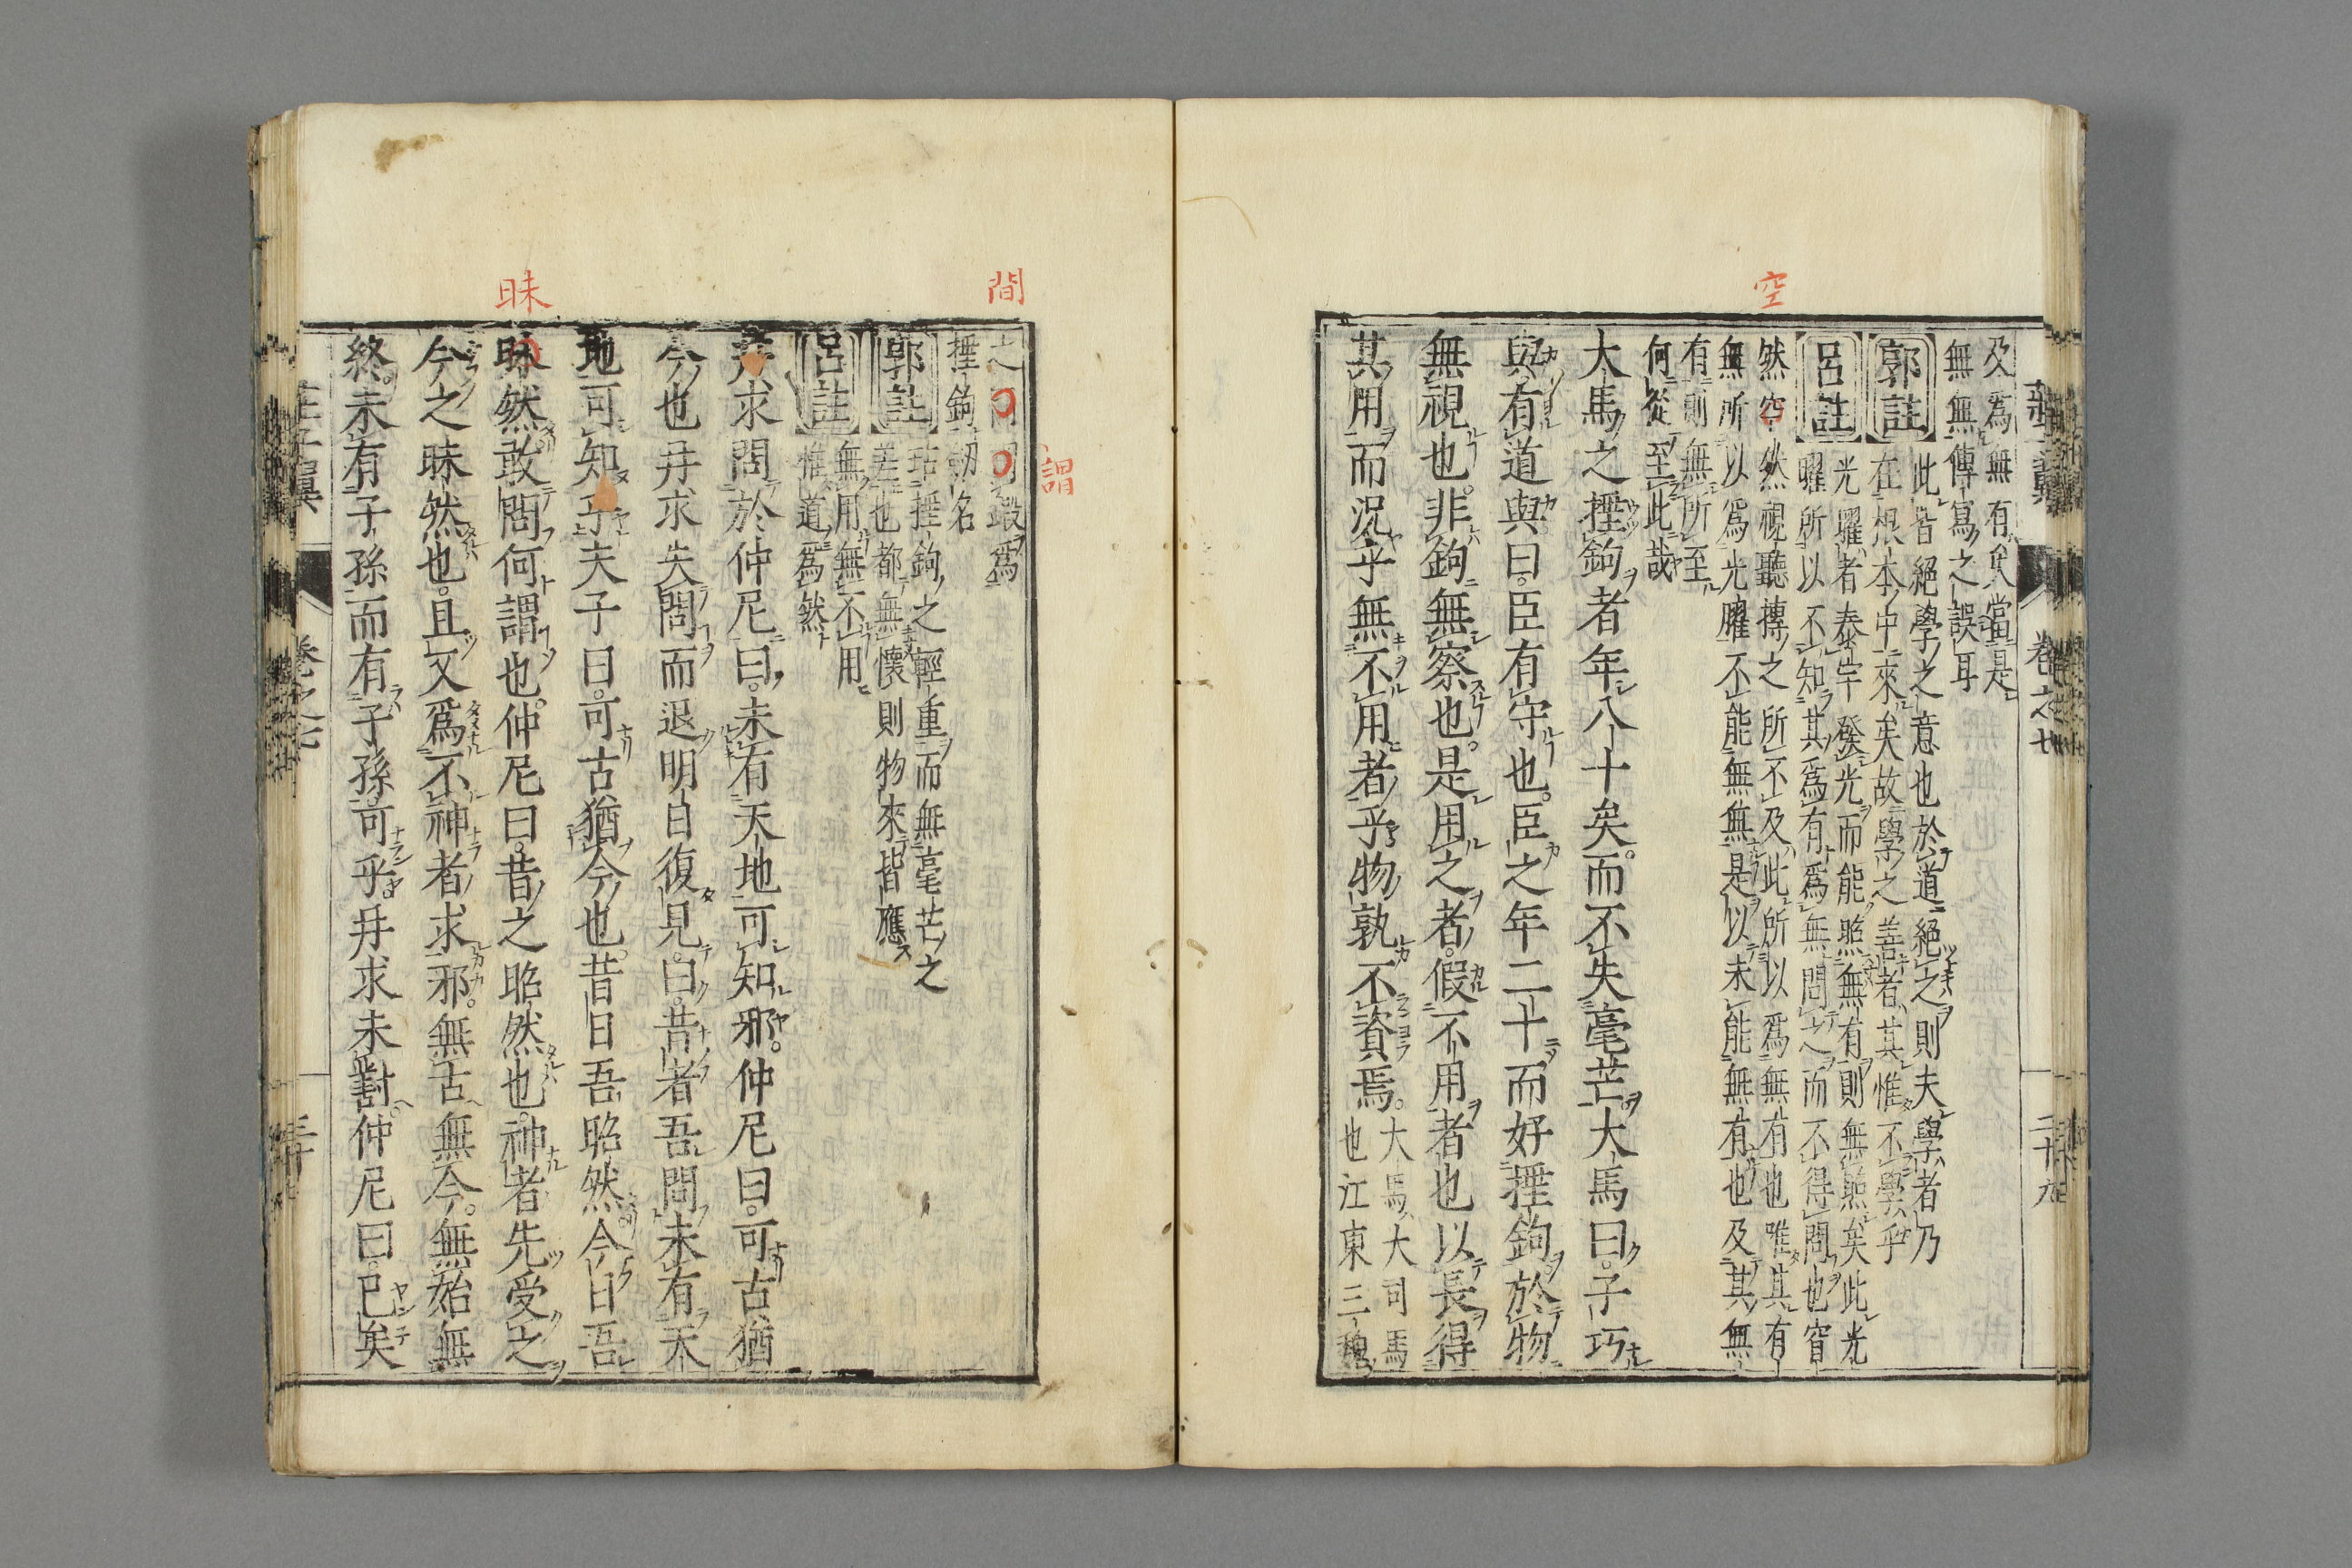 及爲無有矣當是
無無傳寫之誤耳
郭註
此皆絕學之意也於道絕之則夫學者乃
在根本中來矣故學之善者其惟不學乎
呂註
光曜者泰宇發光而能照無有則無照矣此光
曜所以不知其爲有爲無問之而不得問也窅
然空然視聽搏之所不及此所以爲無有也唯其有
無所以爲光曜不能無無是以未能無有也及其無
有則無所至
何從至此哉
大馬之捶鉤者年八十矣而不失毫芒大馬曰子巧
與有道與曰臣有守也臣之年二十而好捶鉤於物
無視也非鉤無察也是用之者假不用者也以長得
其用而況乎無不用者乎物孰不資焉
大馬大司馬
也江東三魏
卷之七
二十九
空
間
謂
之間謂鍛爲
捶鉤劒名
郭註
玷捶鉤之輕重而無毫芒之
差也都無懷則物來皆應
呂註
無用無不用
惟道爲然
冉求問於仲尼曰未有天地可知邪仲尼曰可古猶
今也冉求失問而退明日復見曰昔者吾問未有天
地可知乎夫子曰可古猶今也昔日吾昭然今日吾
昧然敢問何謂也仲尼曰昔之昭然也神者先受之
今之昧然也且又爲不神者求邪無古無今無始無
終未有子孫而有子孫可乎冉求未對仲尼曰已矣
昧
莊子翼
卷之七
三十